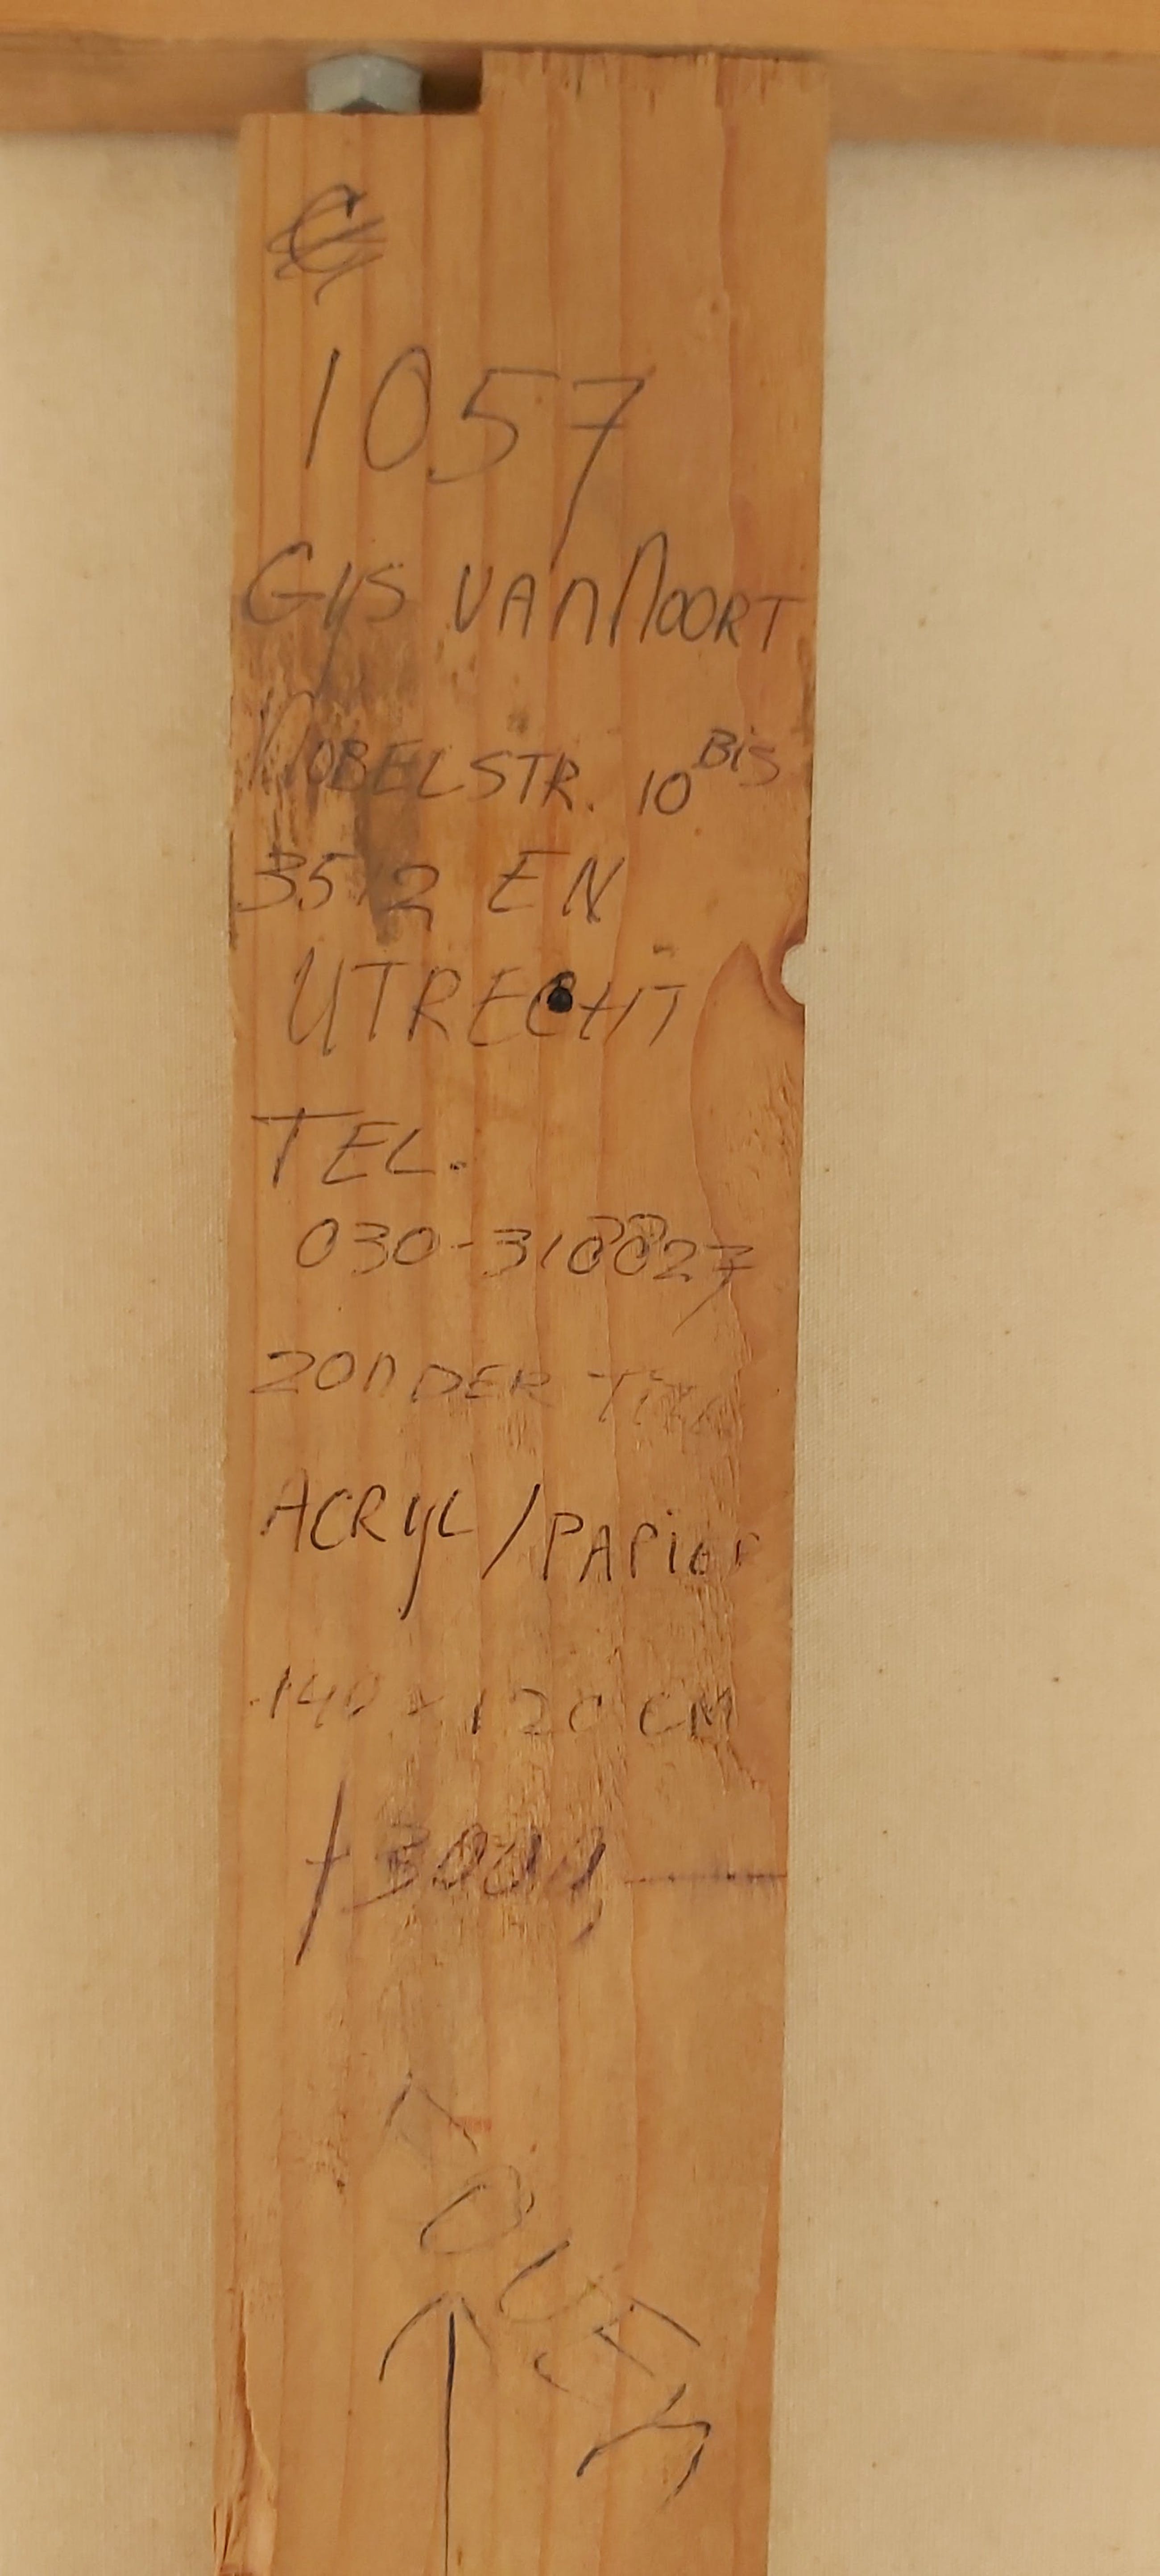 1057
Gijs van Noort
NOBELSTR. 10 Bis
3512 EN
UTRECHT
TEL.
030-318827
ZONDER TITEL
ACRYL/PAPIER
140 x 120 CM